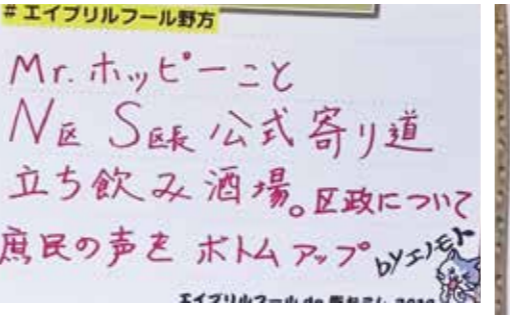 # エイプリルフール野方
Mr.ホッピーこと
N区 S区長 公式寄り道
立ち飲み酒場。区政について
庶民の声を ボトムアップ
byエノモト